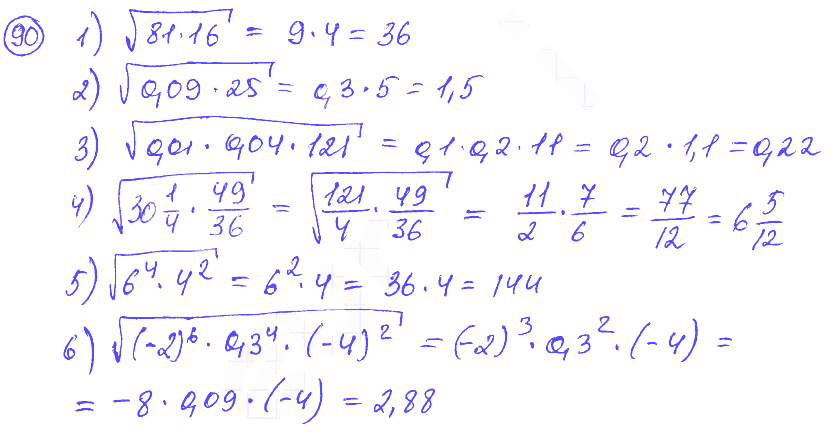 90 1) √(81·16) = 9·4 = 36
2) √(0,09·25) = 0,3·5 = 1,5
3) √(0,01·0,04·121) = 0,1·0,2·11 = 0,2·1,1 = 0,22
4) √(30 1/4 · 49/36) = √(121/4 · 49/36) = 11/2 · 7/6 = 77/12 = 6 5/12
5) √(6⁴·4²) = 6²·4 = 36·4 = 144
6) √((-2)⁶·0,3⁴·(-4)²) = (-2)³·0,3²·(-4) =
= -8·0,09·(-4) = 2,88